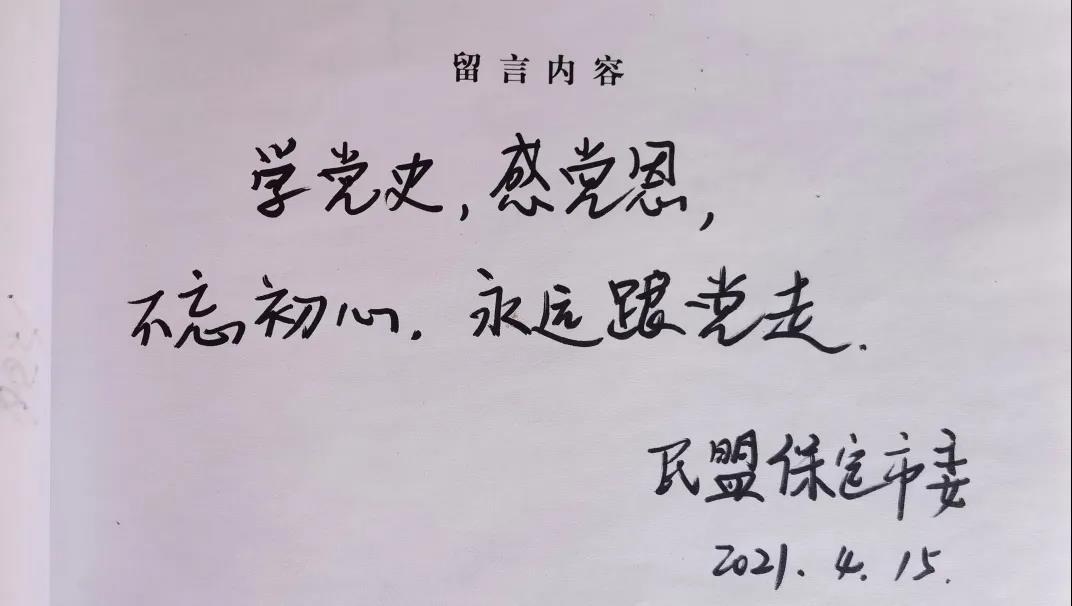 留言内容
学党史,感党恩,
不忘初心.永远跟党走.
民盟保定市委
2021.4.15.